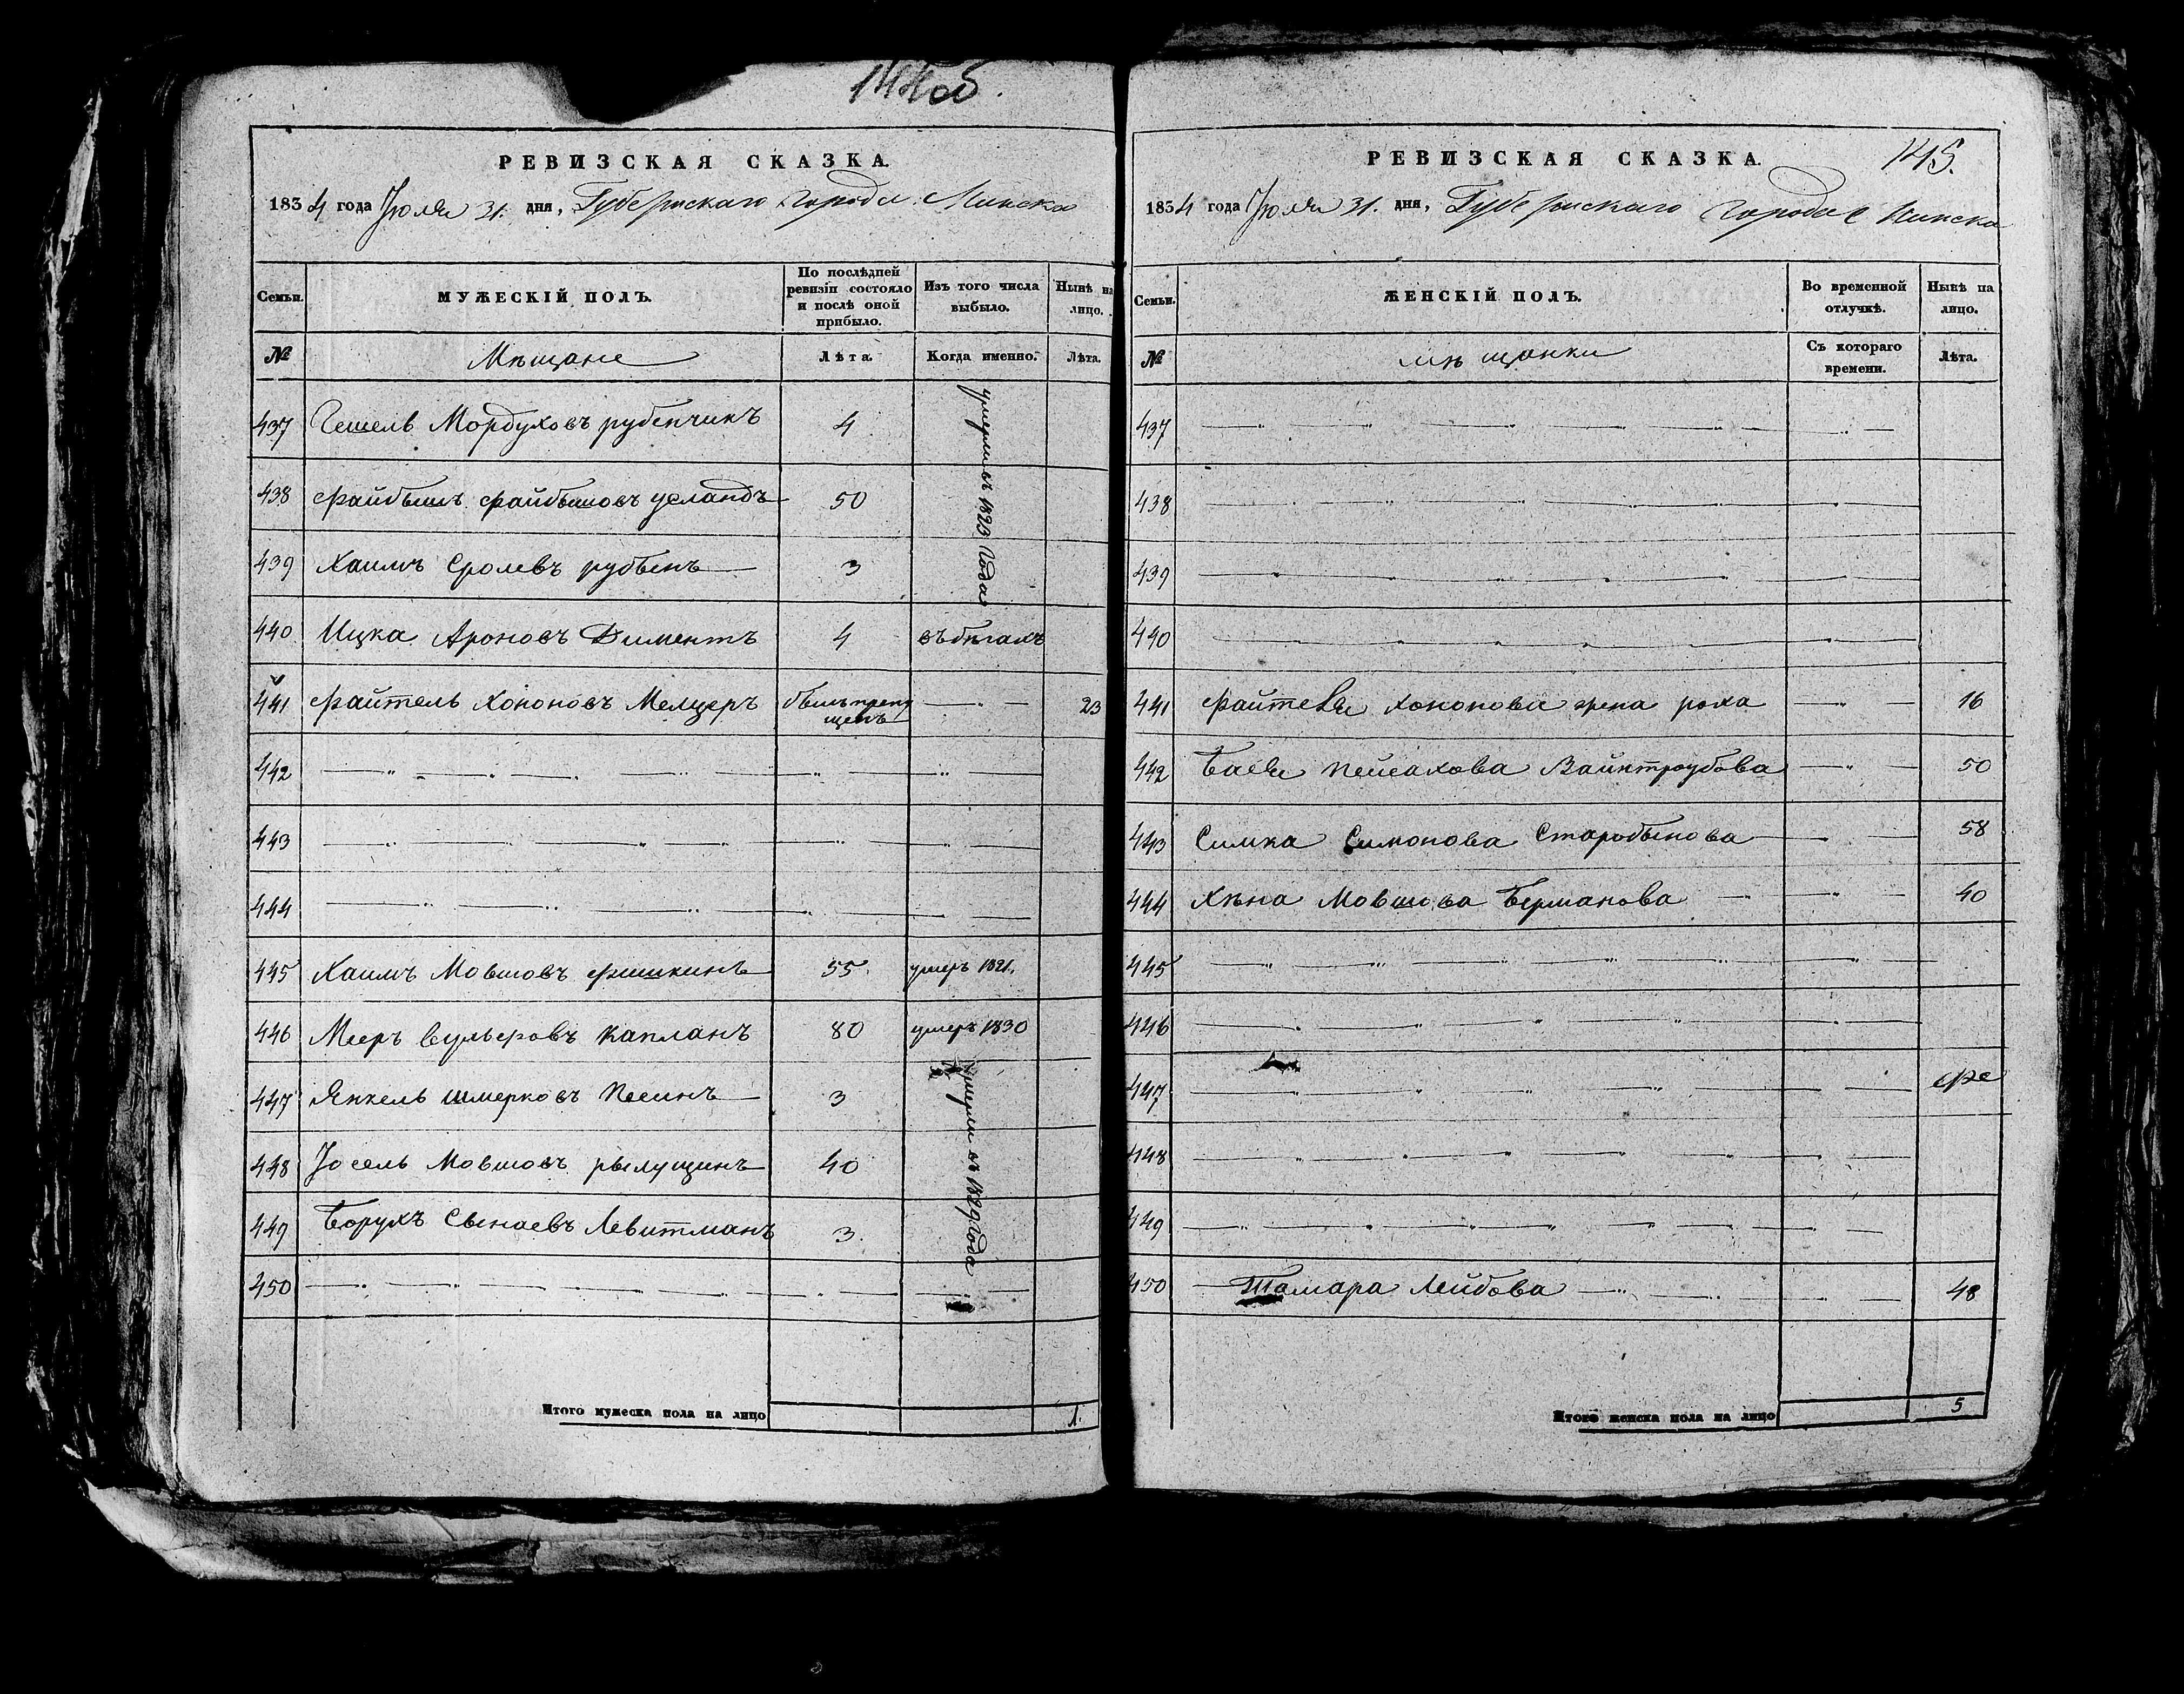 144об.
РЕВИЗСКАЯ СКАЗКА.
1834 года Июля 31. дня, Губернскаго города Минска
Семьи. МУЖЕСКІЙ ПОЛЪ. По послѣдней ревизіи состояло и послѣ оной прибыло. Изъ того числа выбыло. Нынѣ на лицо.
№ Мѣщане Лѣта. Когда именно. Лѣта.
437 Гешель Мордуховъ рубенчикъ 4
умерли въ 1823 года
438 Файбышъ Файбышовъ усландъ 50
439 Хаимъ Сролевъ рубѣенъ 3
440 Ицка Ароновъ Диментъ 4 въ бѣгахъ
441 Файтель Хононовъ Мелцеръ былъ пропущенъ — 23
442
443
444
445 Хаимъ Мовшовъ Фишкинъ 55. умеръ 1821.
446 Мееръ Вульфовъ Капланъ 80 умеръ 1830
447 Янкель шмерковъ Песинъ 3
умерли въ 1829 года
448 Іосель Мовшовъ 40
449 Борухъ Левитманъ 3.
450
Итого мужеска пола на лицо 1.
145.
РЕВИЗСКАЯ СКАЗКА.
1834 года Июля 31. дня, Губернскаго города Минска
Семьи. ЖЕНСКІЙ ПОЛЪ. Во временной отлучкѣ. Нынѣ на лицо.
№ мѣщанки Съ котораго времени. Лѣта.
437
438
439
440
441 Файтеля Хононова жена роха 16
442 Бася пейсахова Вайнтроубова 50
443 Симка Симонова Старобынова 58
444 Хѣна Мовшова Берманова 40
445
446
447
448
449
450 Тамара Лейбова 48
Итого женска пола на лицо 5